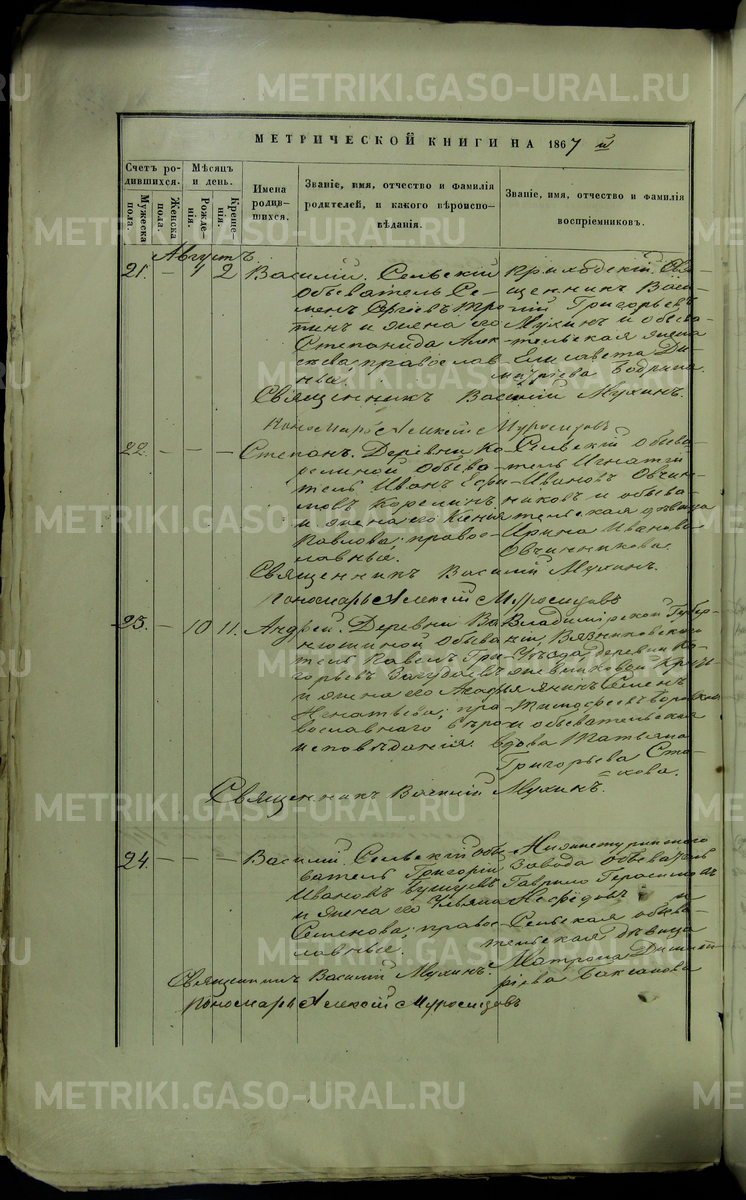 МЕТРИЧЕСКОЙ КНИГИ НА 1867 й
Счетъ родившихся.
Мѣсяцъ и день.
Мужеска пола.
Женска пола.
Рожденія.
Крещенія.
Имена родившихся.
Званіе, имя, отчество и фамилія родителей, и какого вѣроисповѣданія.
Званіе, имя, отчество и фамилія воспріемниковъ.
Августъ
21. — 1 2 Василій. Сельскій
обыватель Се-
менъ Сергѣевъ
и жена его
Степанида Алек-
сѣева; православ-
ные.
Приходскій Свя-
щенникъ Васи-
лій Григорьевъ
Мухинъ и обыва-
тельская жена
Елисавета Ди-
митріева Бодрина.
Священникъ Василій Мухинъ.
Пономарь Алексій
22. — — — Степанъ. Деревни Ко-
релиной обыва-
тель Иванъ
Корелинъ
и жена его Ксенія
Павлова; правос-
лавные.
Сельскій обыва-
тель Игнатій
Ивановъ Овчин-
никовъ и обыва-
тельская дѣвица
Ирина Иванова
Овчинникова.
Священникъ Василій Мухинъ.
Пономарь Алексій
23. — 10 11. Андрей. Деревни
обыва-
тель Павелъ Гри-
горьевъ
и жена его
Игнатьева; пра-
вославнаго вѣро-
исповѣданія.
Владимірской Губер-
ніи, Вязниковскаго
Уѣзда деревни
Семенъ
Тимофеевъ
и обывательская
вдова Татьяна
Григорьева Ста-
хова.
Священникъ Василій Мухинъ.
24. — — — Василій. Сельскій обы-
ватель Григорій
Ивановъ
и жена его Ульяна
Семенова; правос-
лавные.
Нижнетуринскаго
завода обыватель
Гаврило Герасимовъ
и
Сельская обыва-
тельская дѣвица
Матрона Димит-
ріева Баксанова
Священникъ Василій Мухинъ.
Пономарь Алексій
METRIKI.GASO-URAL.RU